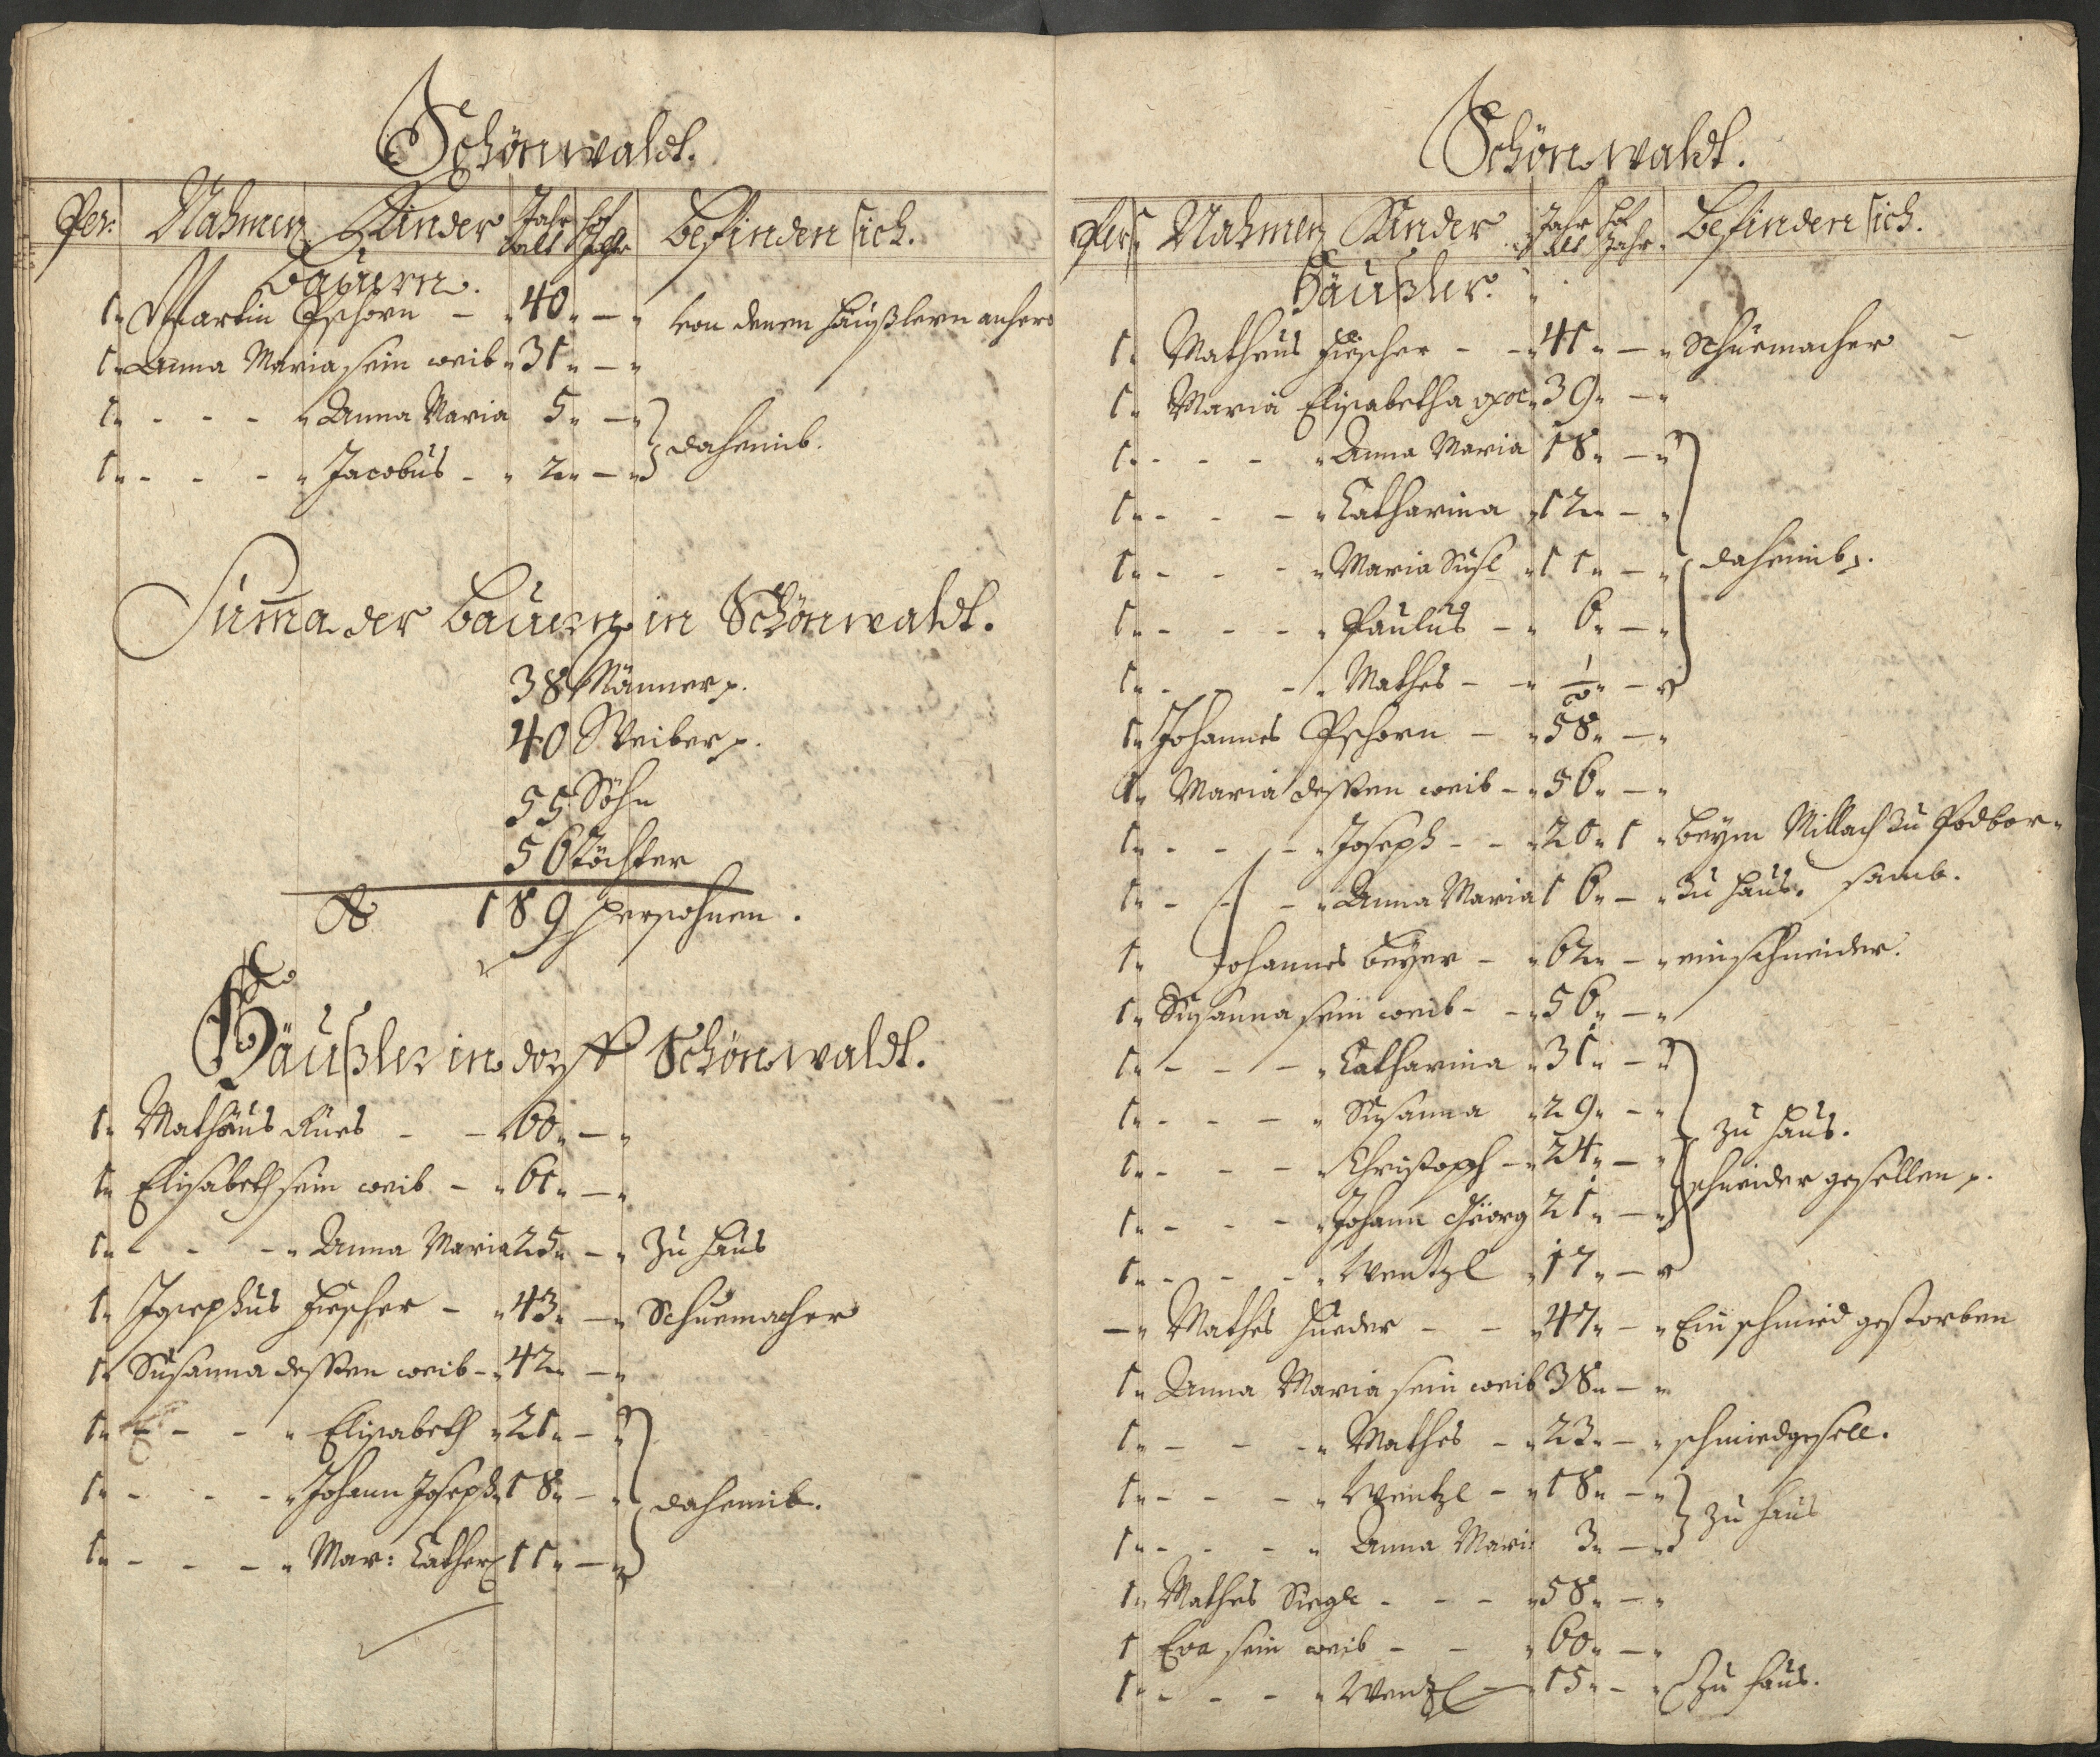 Schönwaldt.
Per: Nahmen Kinder Jahr alt Hof Jahr befinden sich.
Bauern.
1 Martin Pschorn - 40 - von denen Häußlern anhero
1 Anna Maria sein weib 31 -
1 - - - Anna Maria 5 -
dahemib.
1 - - - Jacobus - 2 -
Suma der Bauern in Schönwaldt.
38 Männer p.
40 Weiber p.
55 Söhn
56 Töchter
189 Persohnen.
Häußler in dorff Schönwaldt.
1 Mathäus Rues - - 60 -
1 Elisabeth sein weib - 61 -
1 - - - Anna Maria 25 - Zu Haus
1 Josephus Fischer - 43 - Schuemacher
1 Susanna dessen weib - 42 -
1 - - - Elisabeth 21 -
1 - - - Johann Joseph 18 - dahemib.
1 - - - Mar: Cather 11 -
Schönwaldt.
Pers Nahmen Kinder Jahr alt Hof Jahr. Befinden sich.
Häußler.
1 Matheus Fischer - - 41 - Schuemacher -
1 Maria Elisabetha uxor 39 -
1 - - - Anna Maria 18 -
1 - - - Catharina 12 -
1 - - - Maria Susl 11 - dahemib p.
1 - - - Paulus - 6 -
1 - - - Mathes - - 1/2 -
1 Johannes Pschorn - 58 -
1 Maria dessen weib - 56 -
1 - - - Joseph - - 20 1 beym Millach zu Podbor-
1 - - - Anna Maria 16 - zu Haus. samb.
1 Johannes Beyer - 62 - ein schneider.
1 Susanna sein weib - - 56 -
1 - - - Catharina 31 -
1 - - - Susanna 29 - zu Haus.
1 - - - Christoph - 24 -
1 - - - Johann Geörg 21 - schneider gesellen p.
1 - - - Wentzl 17 -
- Mathes Hueder - - 47 - Ein schmied gestorben
1 Anna Maria sein weib 38 -
1 - - - Mathes - 23 - schmiedgesell.
1 - - - Wentzl - 18 -
zu Haus
1 - - - Anna Mari: 3 -
1 Mathes Siegl - - - 58 -
1 Eva sein weib - - 60 -
1 - - - Wenzl - 15 - Zu Haus.